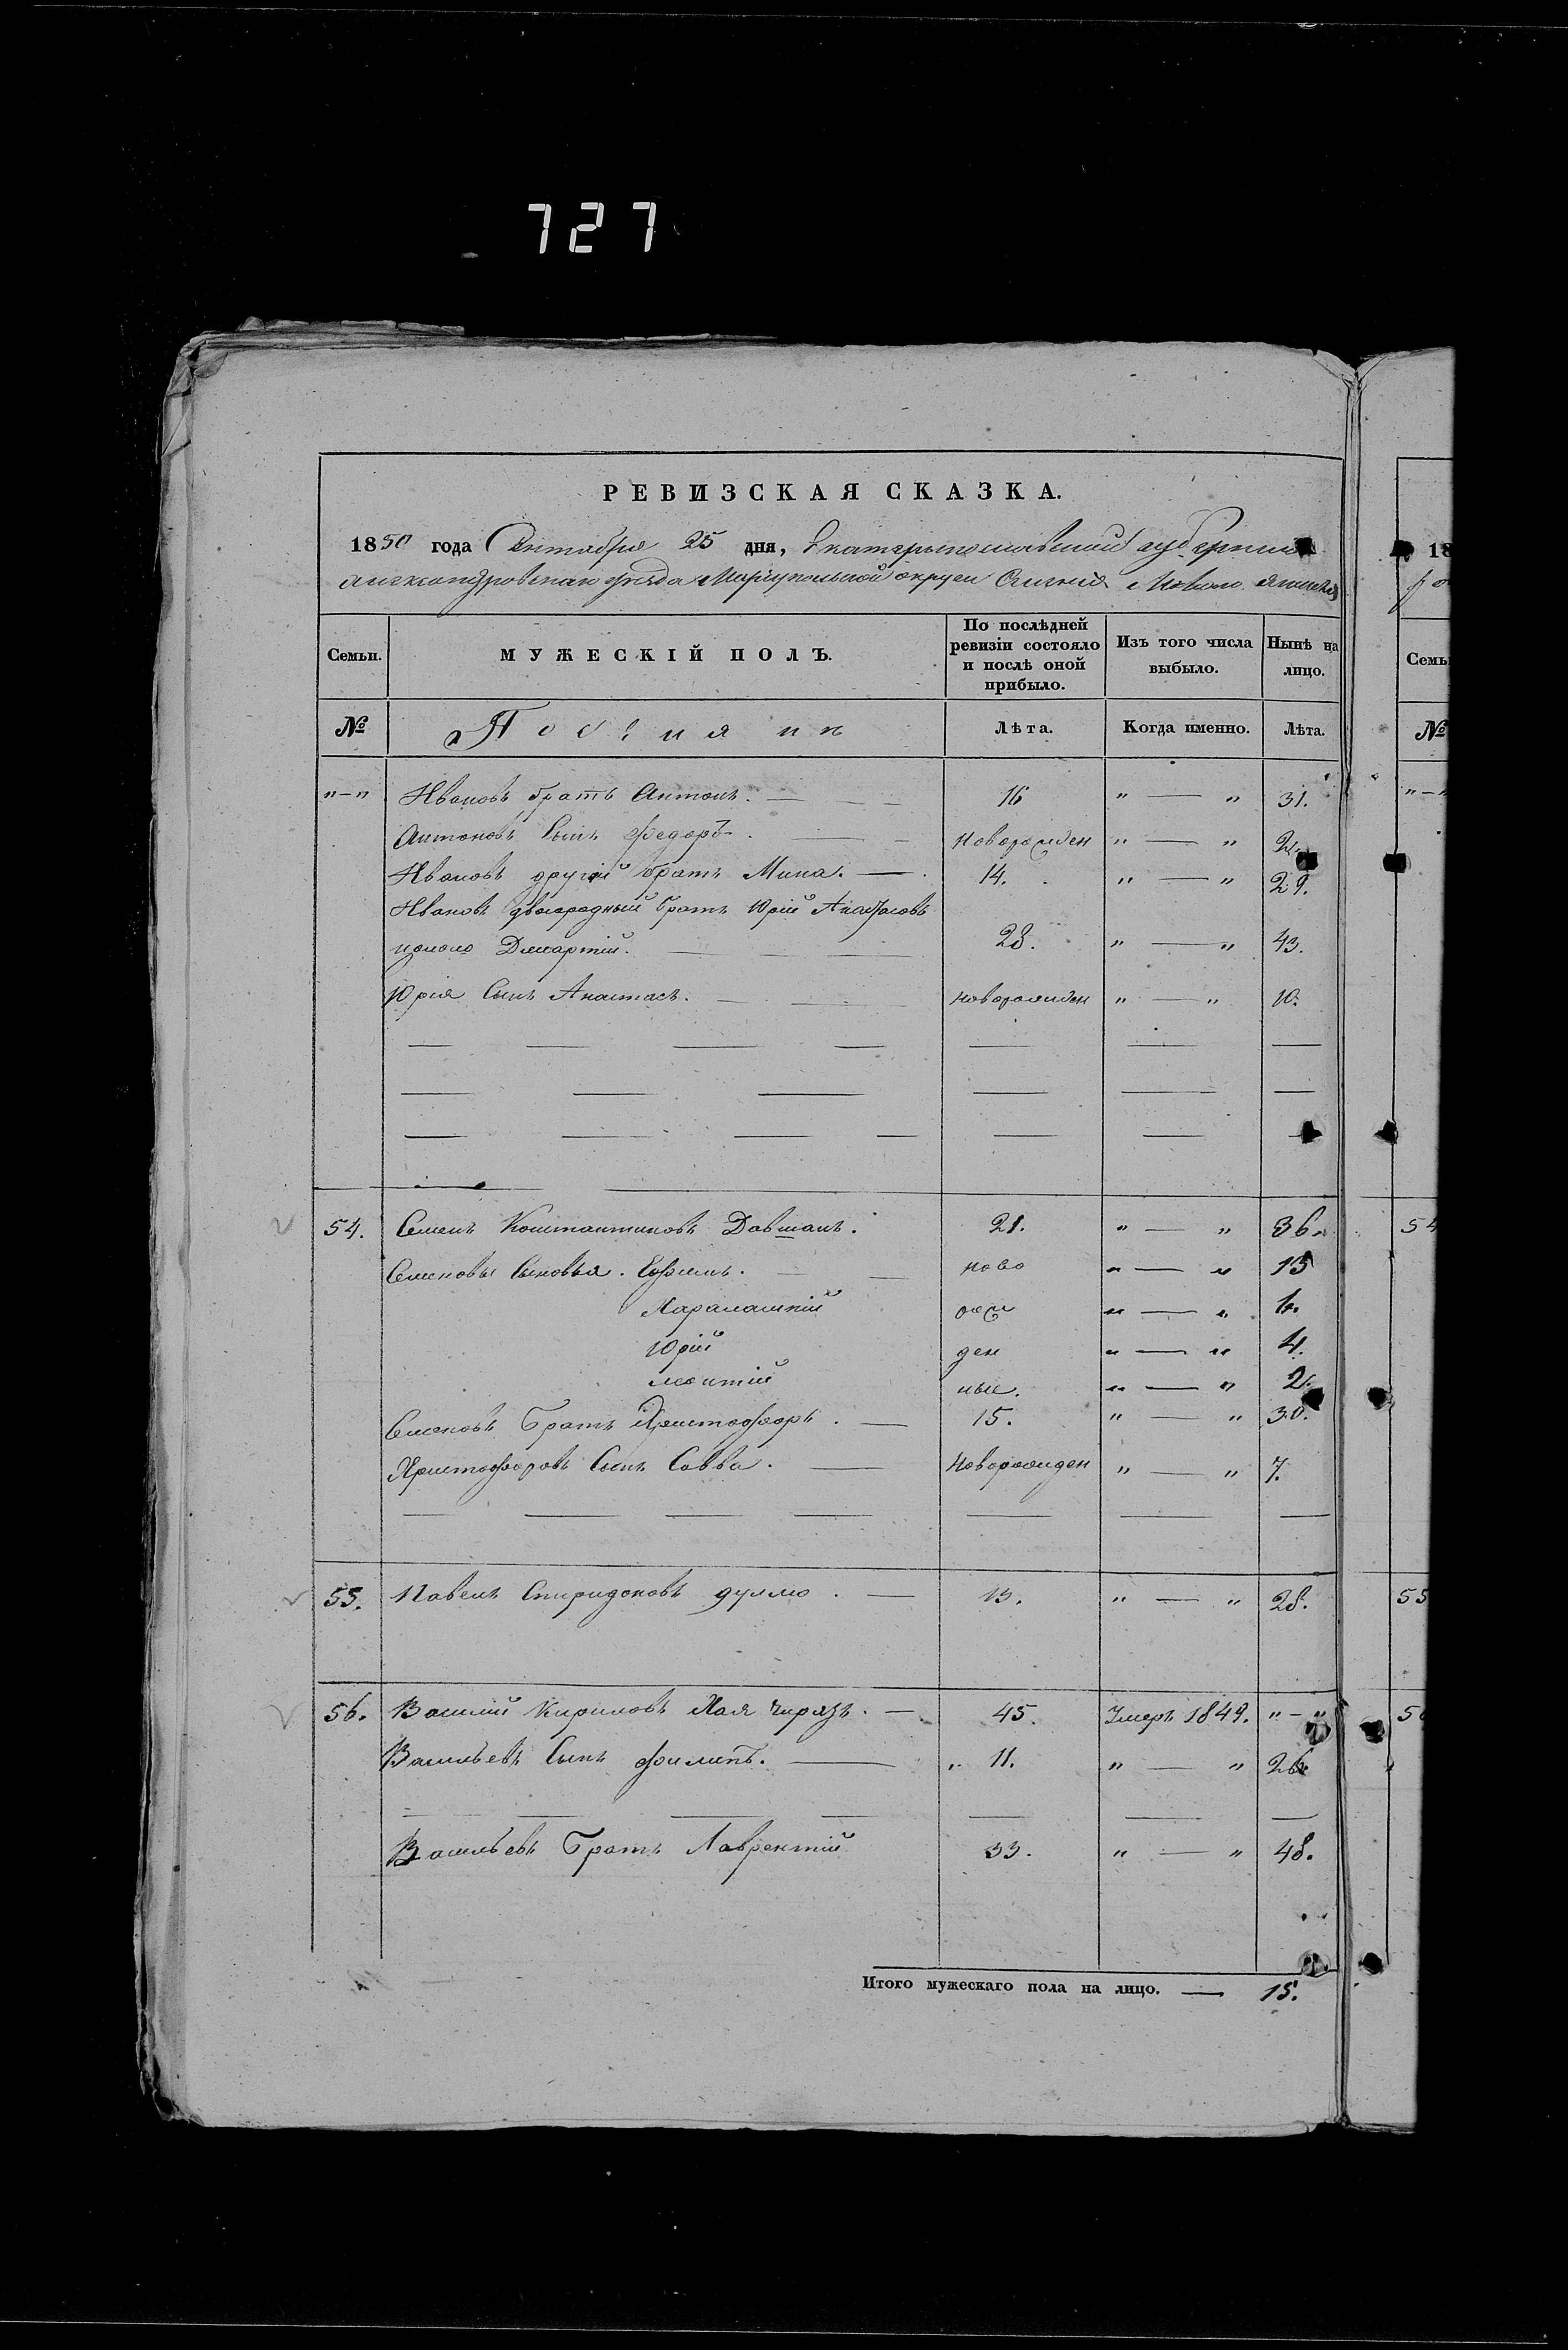 727
РЕВИЗСКАЯ СКАЗКА.
1850 года Сентября 25 дня, Екатеринославской губернии
александровскаго уѣзда Мариупольской округи Селенія
Семьи. МУЖЕСКІЙ ПОЛЪ. По послѣдней ревизіи состояло и послѣ оной прибыло. Изъ того числа выбыло. Нынѣ на лицо.
№ Лѣта. Когда именно. Лѣта.
"—" Ивановъ братъ Антонъ. 16 " — " 31.
Антоновъ Сынъ Федоръ. Новорожден " — " 2.
Ивановъ другій братъ Мина. 14. " — " 29.
Ивановъ двоюродный братъ Юрій
28. " — " 43.
Юрія Сынъ Анастасъ. новорожден " — " 10.
54. Семенъ Константиновъ Довшанъ. 21. " — " 36.
Семеновы Сыновья. Ефимъ. ново " — " 13
Харалампій рож " — "
Юрій ден " — " 4.
ные. " — " 2.
Семеновъ Братъ Христофоръ. 15. " — " 30.
Христофоровъ Сынъ Савва. Новорожден " — " 7.
55. Павелъ Спиридоновъ 13. " — " 28.
56. Василій Кириловъ 45. Умеръ 1849. "—"
Васильевъ Сынъ Филипъ. 11. " — " 26
Васильевъ Братъ Лаврентій 33. " — " 48.
Итого мужескаго пола на лицо. — 15.
18
Семь
№
"—"
54
55